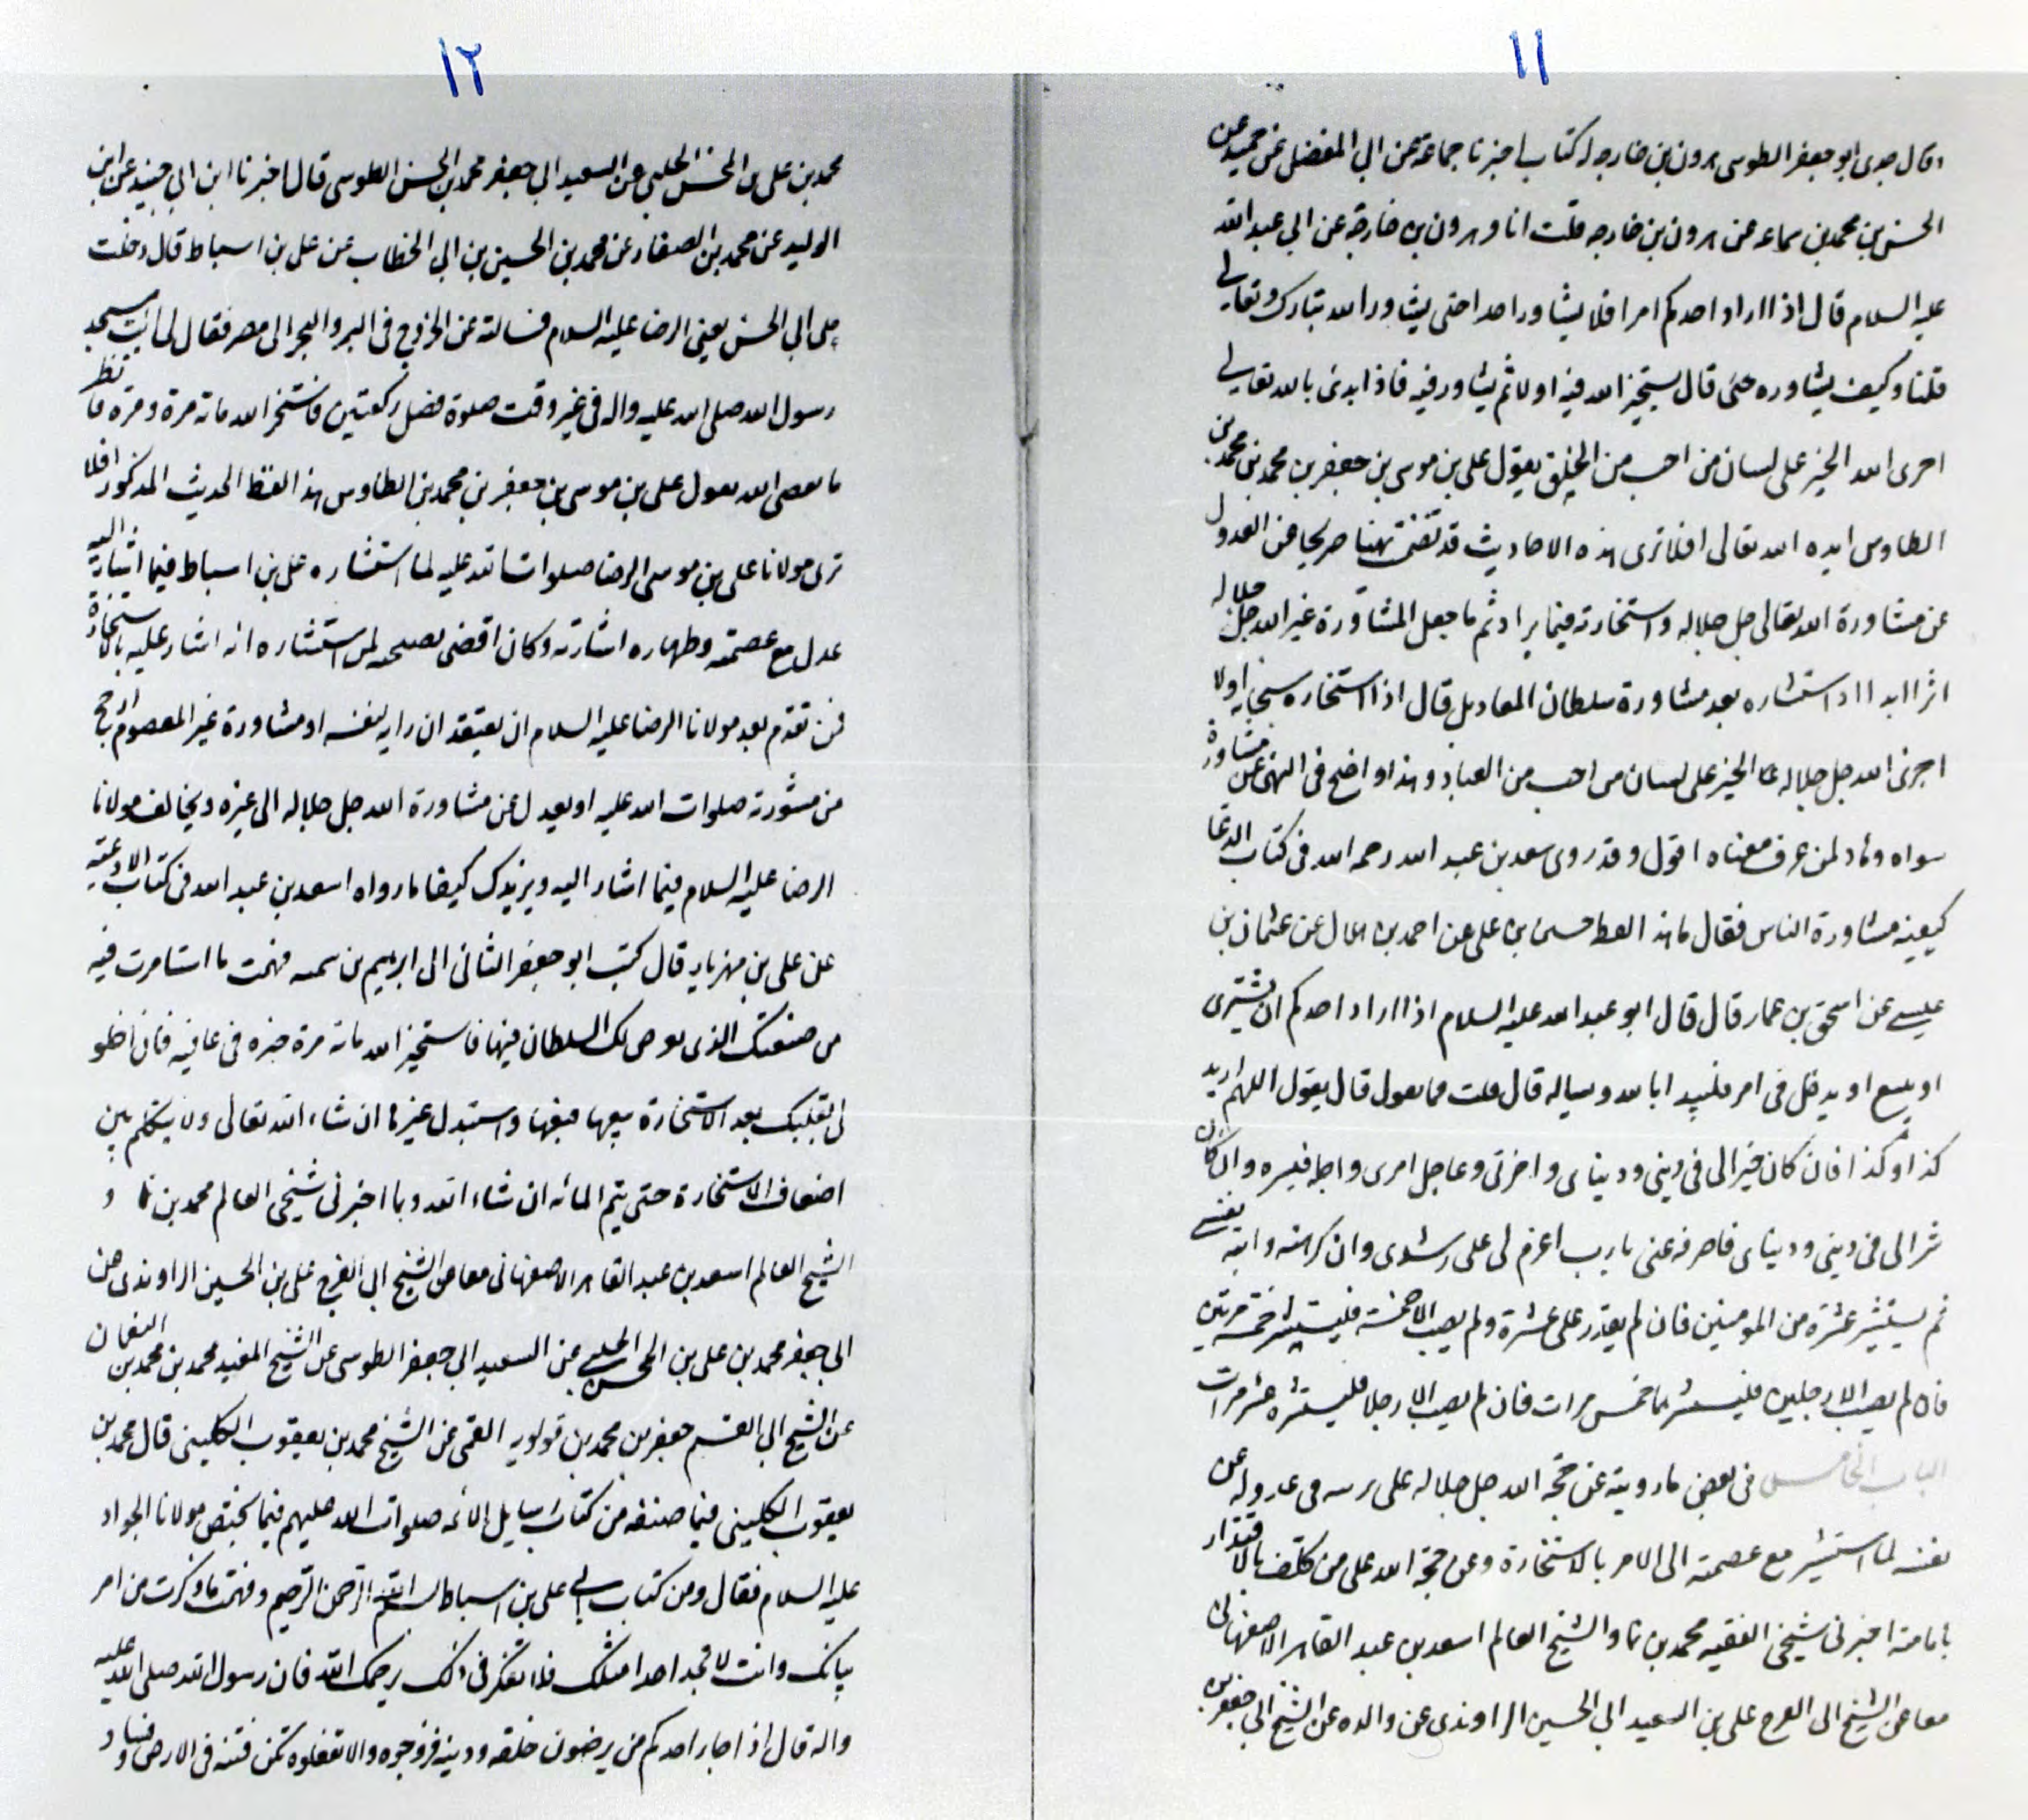 ١١
وقال جدى ابو جعفر الطوسى هرون بن خارجه له كتاب اخبرنا جماعة عن ابى المفضل عن حميد عن
الحسن بن محمد بن سماعه عن هرون بن خارجه قلت انا وهرون بن خارجة عن ابى عبد الله
عليه السلام قال اذا اراد احدكم امرا فلا يشاور احدا حتى يشاور الله تبارك وتعالى
قلنا وكيف يشاوره قال يستخير الله فيه اولا ثم يشاور فيه فاذا ابدئ بالله تعالى
اجرى الله الخير على لسان من احب من الخلق يقول على بن موسى بن جعفر بن محمد بن محمد بن
الطاوس ايده الله تعالى افلا ترى هذه الاحاديث قد تضمنت نهيا صريحا عن العدول
عن مشاورة الله تعالى جل جلاله واستخارته فيما يراد ثم ما جعل المشاورة غير الله جل جلاله
اثرا ابدا اذ استشاره بعد مشاورة سلطان المعاد بل قال اذا استخاره سبحانه اولا
اجرى الله جل جلاله الخير على لسان من احب من العباد وهذا واضح فى النهى عن مشاورة
سواه وهاد لمن عرف معناه اقول وقد روى سعد بن عبد الله رحمه الله فى كتاب الدعا
كيفيته مشاورة الناس فقال ما هذا لفظه حسين بن على عن احمد بن هلال عن عثمان بن
عيسى عن اسحق بن عمار قال قال ابو عبد الله عليه السلام اذا اراد احدكم ان يشترى
او يبيع او يدخل فى امر فليبدا بالله ويساله قال قلت فما يقول قال يقول اللهم اريد
كذا وكذا فان كان خيرا لى فى دينى ودنياى واخرتى وعاجل امرى واجله فيسره وان كان
شرا لى فى دينى ودنياى فاصرفه عنى يا رب اعزم لى على رشدى وان كرهته وابته نفسى
ثم يستشير عشرة من المومنين فان لم يقدر على عشرة ولم يصب الا خمسة فليستشر خمسة مرتين
فان لم يصب الا رجلين فليستشرهما خمس مرات فان لم يصب الا رجلا فليستشره عشر مرات
الباب الخامس فى بعض ما رويته عن حجة الله جل جلاله على بريته فى عدوله عن
نفسه لما استشير مع عصمته الى الامر بالاستخارة وعن حجة الله على من كلف بالاقتدار
بامامته اخبرنى شيخى الفقيه محمد بن نما والشيخ العالم اسعد بن عبد القاهر الاصفهانى
معا عن الشيخ ابى الفرج على بن السعيد ابى الحسين الراوندى عن والده عن الشيخ ابى جعفر بن
١٢
محمد بن على بن المحسن الحلبى عن السعيد ابى جعفر محمد بن الحسن الطوسى قال اخبرنا ابن ابى جنيد عن ابن
الوليد عن محمد بن الصفار عن محمد بن الحسين بن ابى الخطاب عن على بن اسباط قال دخلت
على ابى الحسن يعنى الرضا عليه السلام فسالته عن الخروج فى البر والبحر الى مصر فقال لى ائت مسجد
رسول الله صلى الله عليه واله فى غير وقت صلوة فصل ركعتين فاستخر الله مائة مرة ومرة فانظر
ما يقضى الله يقول على بن موسى بن جعفر بن محمد بن الطاوس هذا لفظ الحديث المذكور افلا
ترى مولانا على بن موسى الرضا صلوات الله عليه لما استشاره على بن اسباط فيما اشار اليه
عدل مع عصمته وطهاره اشارته وكان اقصى نصيحته لمن استشاره انه اشار عليه بالاستخارة
فمن تقدم بعد مولانا الرضا عليه السلام ان يعتقد ان رايه لنفسه او مشاورة غير المعصوم ارجح
من مشورته صلوات الله عليه او يعدل عن مشاورة الله جل جلاله الى غيره ويخالف مولانا
الرضا عليه السلام فيما اشار اليه ويزيدك كيفا ما رواه اسعد بن عبد الله فى كتاب الادعيه
عن على بن مهزيار قال كتب ابو جعفر الثانى الى ابرهيم بن شيبه فهمت ما استامرت فيه
من ضيعتك التى تعرض لك السلطان فيها فاستخير الله مائة مرة خيره فى عافيه فان احلو
لى بقلبك بعد الاستخارة بيعها فبعها واستبدل غيرها ان شاء الله تعالى ولا يتكلم بين
اضعاف الاستخارة حتى يتم المائه ان شاء الله وبما اخبرنى شيخى العالم محمد بن نما و
الشيخ العالم اسعد بن عبد القاهر الاصفهانى معا عن الشيخ ابى الفرج على بن الحسين الراوندى عن
ابى جعفر محمد بن على بن المحسن الحلبى عن السعيد ابى جعفر الطوسى عن الشيخ المفيد محمد بن محمد بن النعمان
عن الشيخ ابى القسم جعفر بن محمد بن قولويه القمى عن الشيخ محمد بن يعقوب الكلينى قال محمد بن
يعقوب الكلينى فيما صنفه من كتاب رسايل الائمه صلوات الله عليهم فيما يختص مولانا الجواد
عليه السلام فقال ومن كتاب الى على بن اسباط بسم الله الرحمن الرحيم وفهمت ما ذكرت من امر
بناتك وانت لا تجد احدا مثلك فلا تفكر فى ذلك يرحمك الله فان رسول الله صلى الله عليه
واله قال اذا جاء احدكم من يرضون خلقه ودينه فزوجوه والا تفعلوه تكن فتنه فى الارض وفساد